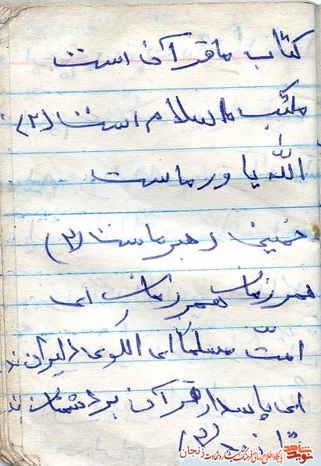 کتاب ما قرآن است
مکتب ما اسلام است (۲)
الله یاور ماست
خمینی رهبر ماست (۳)
همرزمان همرزمان ای
امت مسلمان ای الگوی ایران
ای پاسدار قرآن بر دشمنان
(۳)
نوید شاهد
زنجان